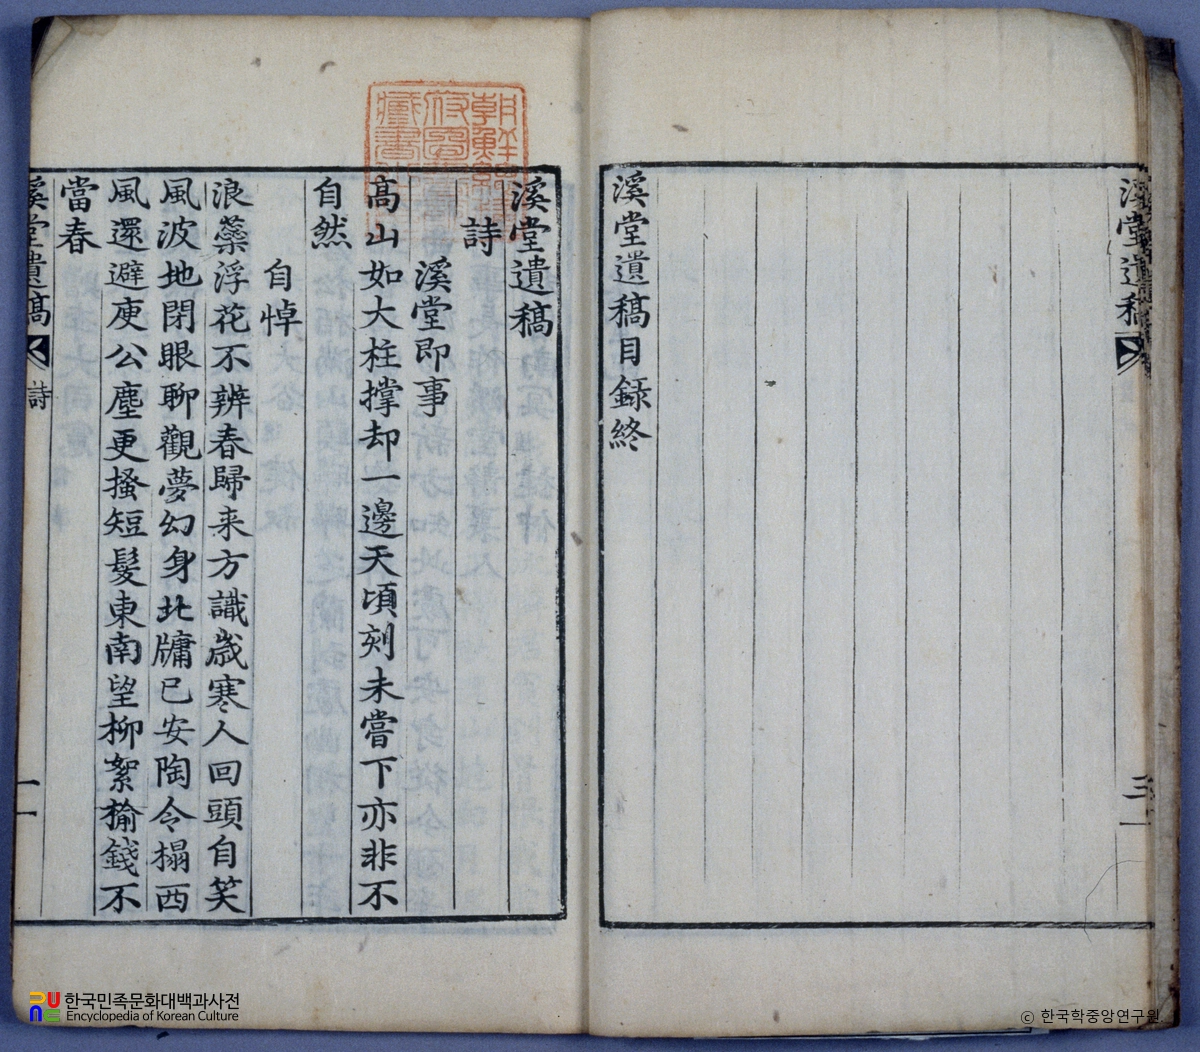 溪堂遺稿
溪堂遺稿目錄終
溪堂遺稿
詩
溪堂即事
高山如大柱撑却一邊天頃刻未嘗下亦非不
自然
自悼
浪蘂浮花不辨春歸来方識歲寒人回頭自笑
風波地閉眼聊觀夢幻身北牗已安陶令榻西
風還避庾公塵更搔短髮東南望柳絮揄錢不
當春
溪堂遺稿
詩
한국민족문화대백과사전
Encyclopedia of Korean Culture
ⓒ 한국학중앙연구원